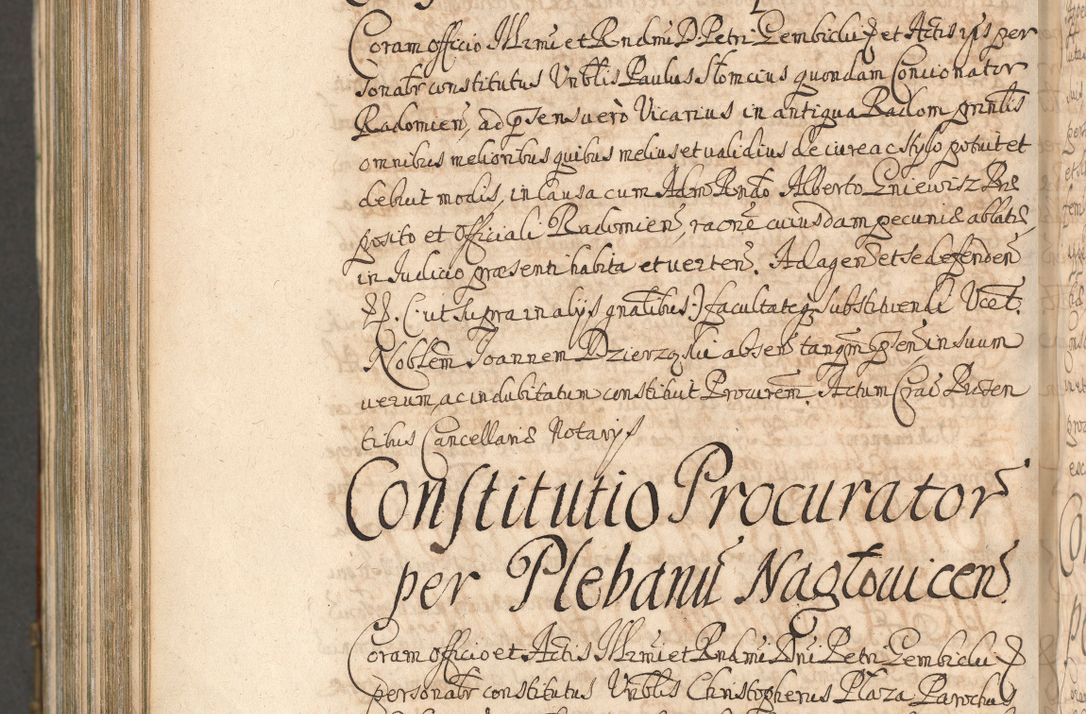 Coram officio Illrmi et Rndmi D. Petri Gembicki et Actis ip̃s per
sonalr̃ constitutus Vnblĩs Paulus Słomcius quondam Concionator
Radomien̄, ad p̄sens verò Vicarius in antiqua Radom p̄rintīs
omnibus melioribus quibus melius et validius de iure ac stylo potuit et
debuit modis, in causa cum Adm̄ Rndo Alberto Gniewisz Præ
posito et Officiali Radomien̄, racn̄e cuiusdam pecuniæ ablatæ
in Judicio præsenti habita et verten̄. Ad agen̄ et se defenden̄
(: ut supra in alijs gn̄alibus :) facultateq̃ substituendi Vcet̄.
Noblem Joannem Dzierzgski absen̄ tanq̄m p̄sen̄ in suum
verum, ac indubitatum constituit Procurem̄. Actum Crac̄ Præsen
tibus Cancellariæ Notarijs
Constitutio Procurator̄
per Plebanū Nagłouicen̄
Coram officio et Actis Illrmi et Rndmi Dn̄i Petri Gembicki
personalr̃ constitutus Vnblĩs Christopherus Płaza Parochus